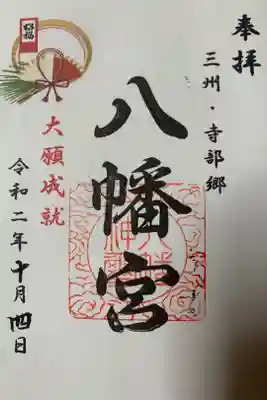 奉拝
三州・寺部郷
八幡宮
大願成就
令和二年十月四日
招福